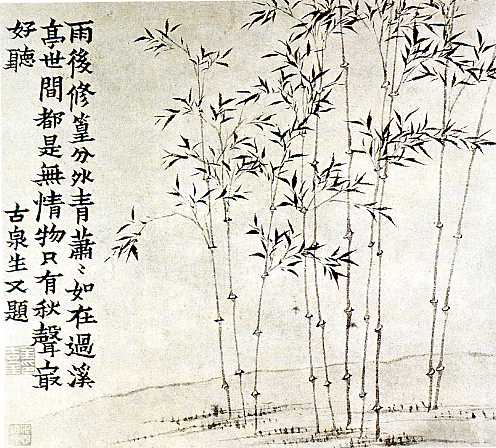 雨後修篁分外青蕭〻如在過溪
亭世間都是無情物只有秋聲最
好聽
古泉生又題